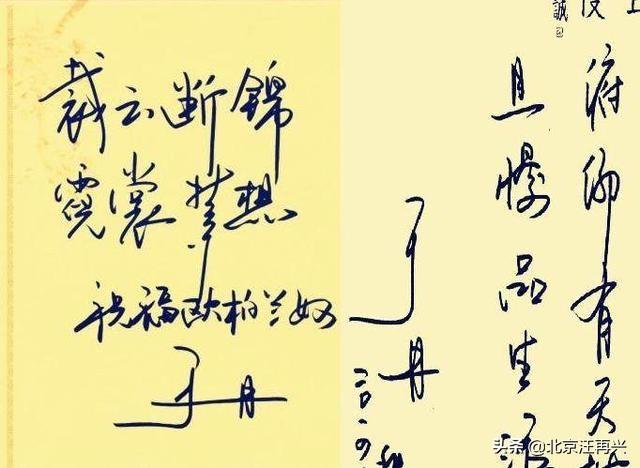 裁云断锦
霓裳梦想
祝福欧柏兰奴
于丹
誠
仰有天
且慢品生活
于丹
二〇一四
头条 @北京汪再兴